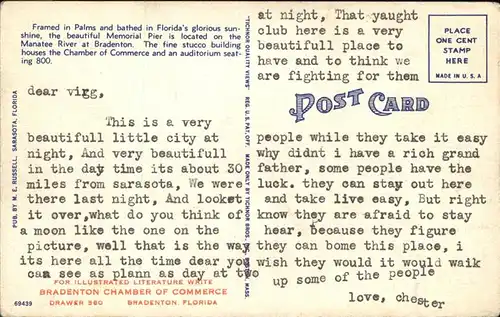 Framed in Palms and bathed in Florida's glorious sun-
shine, the beautiful Memorial Pier is located on the
Manatee River at Bradenton. The fine stucco building
houses the Chamber of Commerce and an auditorium seat-
ing 800.
dear vigg,
This is a very
beautifull little city at
night, And very beautifull
in the day time its about 30
miles from sarasota, We were
there last night, And looket
it over,what do you think of
a moon like the one on the
picture, well that is the way
its here all the time dear you
can see as plann as day at two
FOR ILLUSTRATED LITERATURE WRITE
BRADENTON CHAMBER OF COMMERCE
DRAWER 360 BRADENTON, FLORIDA
69439
PUB. BY M. E. RUSSELL, SARASOTA, FLORIDA
"TICHNOR QUALITY VIEWS" REG. U. S. PAT. OFF. MADE ONLY BY TICHNOR BROS. MASS.
at night, That yaught
club here is a very
beautifull place to
have and to think we
are fighting for them
PLACE
ONE CENT
STAMP
HERE
MADE IN U.S.A
POST CARD
people while they take it easy
why didnt i have a rich grand
father, some people have the
luck. they can stay out here
and take live easy, But right
know they are afraid to stay
hear, because they figure
they can bome this place, i
wish they would it would walk
up some of the people
love, chester